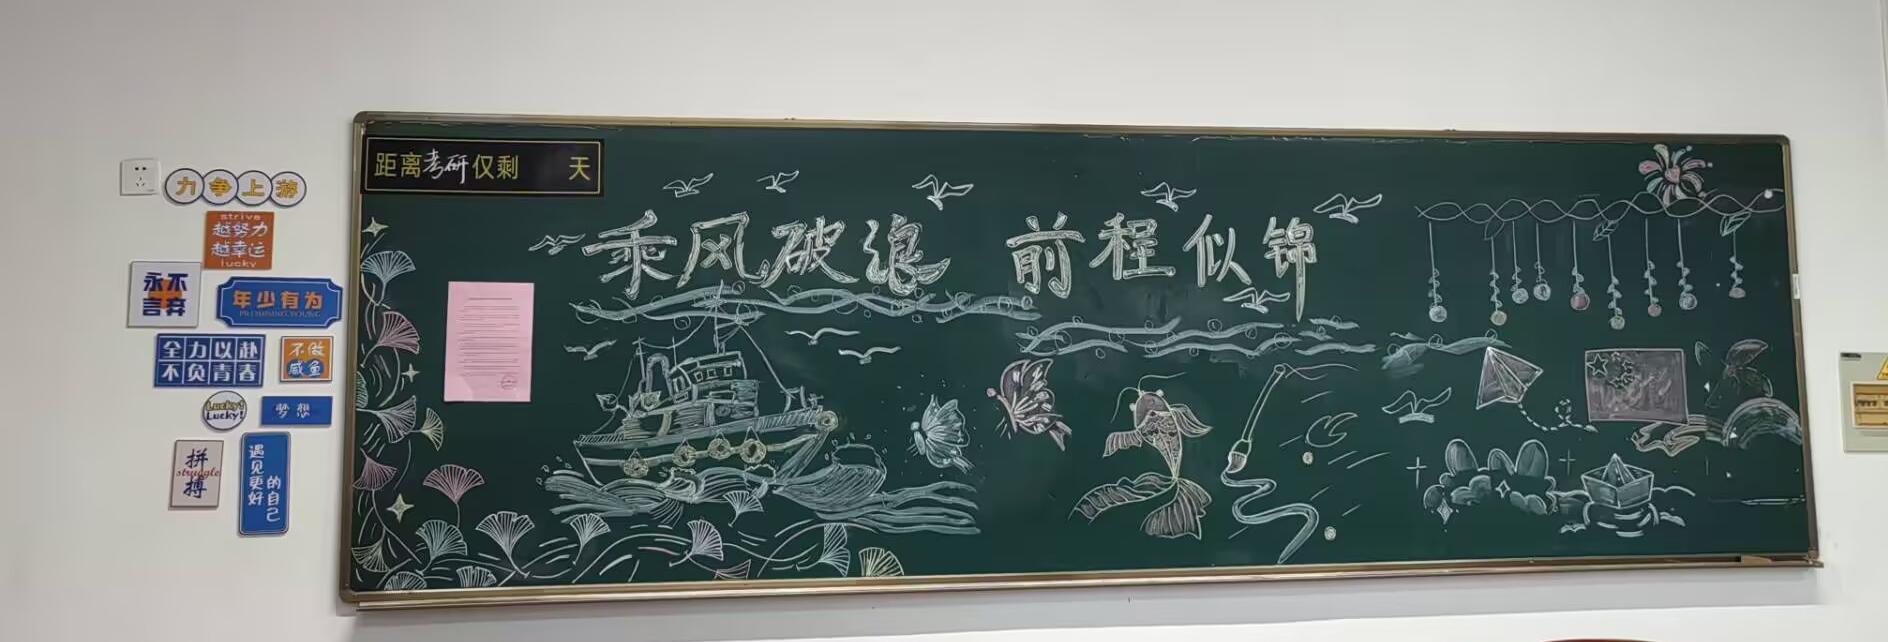 力争上游
strive
越努力
越幸运
lucky
永不
言弃
年少有为
PROMISING YOUNG
全力以赴
不负青春
不做
咸鱼
Lucky!
Lucky!
梦想
拼
struggle
搏
遇见更好
的自己
距离考研仅剩 天
乘风破浪 前程似锦